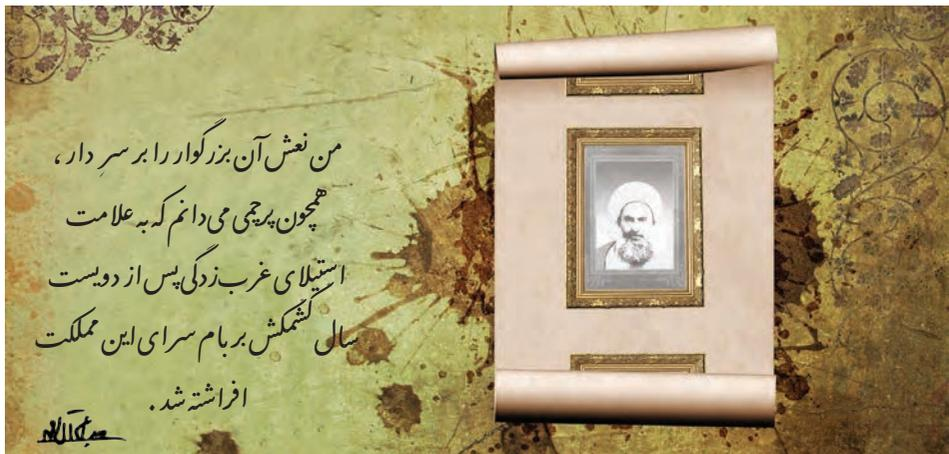 من نعش آن بزرگوار را بر سرِ دار،
همچون پرچمی می‌دانم که به علامت
استیلای غرب‌زدگی پس از دویست
سال کشمکش بر بام سرای این مملکت
افراشته شد.